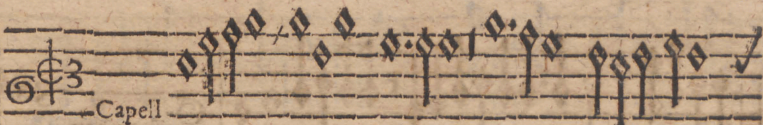 3
Capell